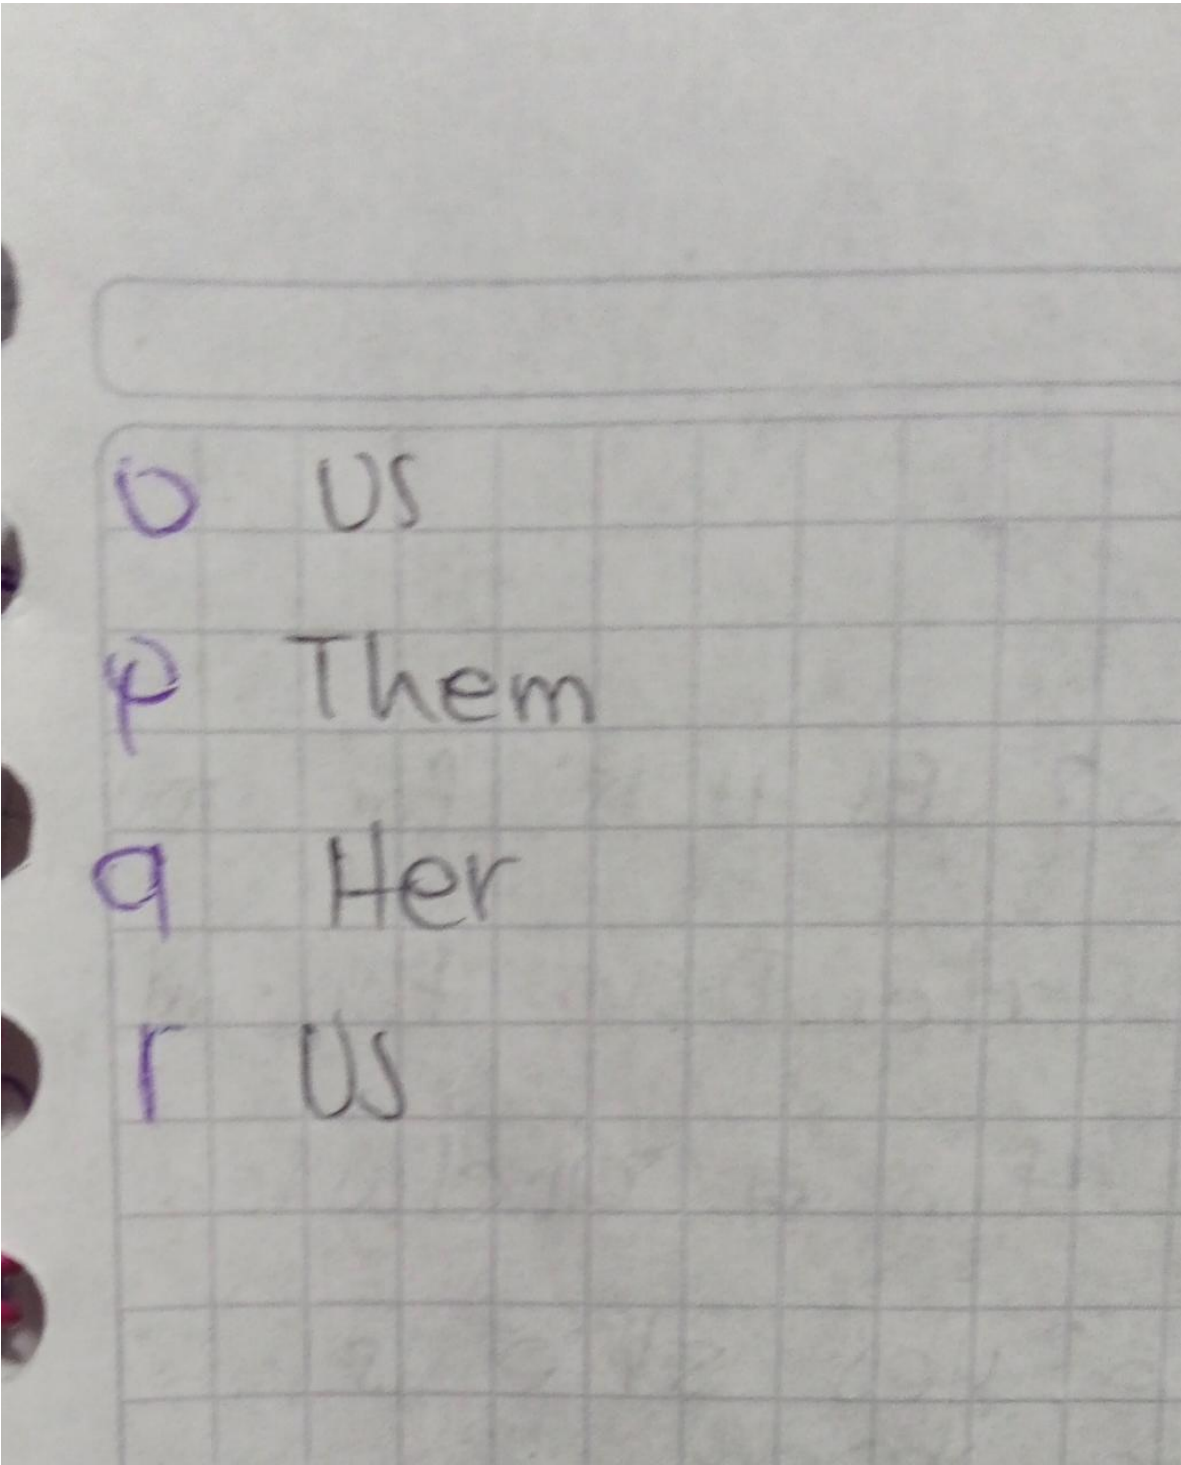 o US
p Them
q Her
r US